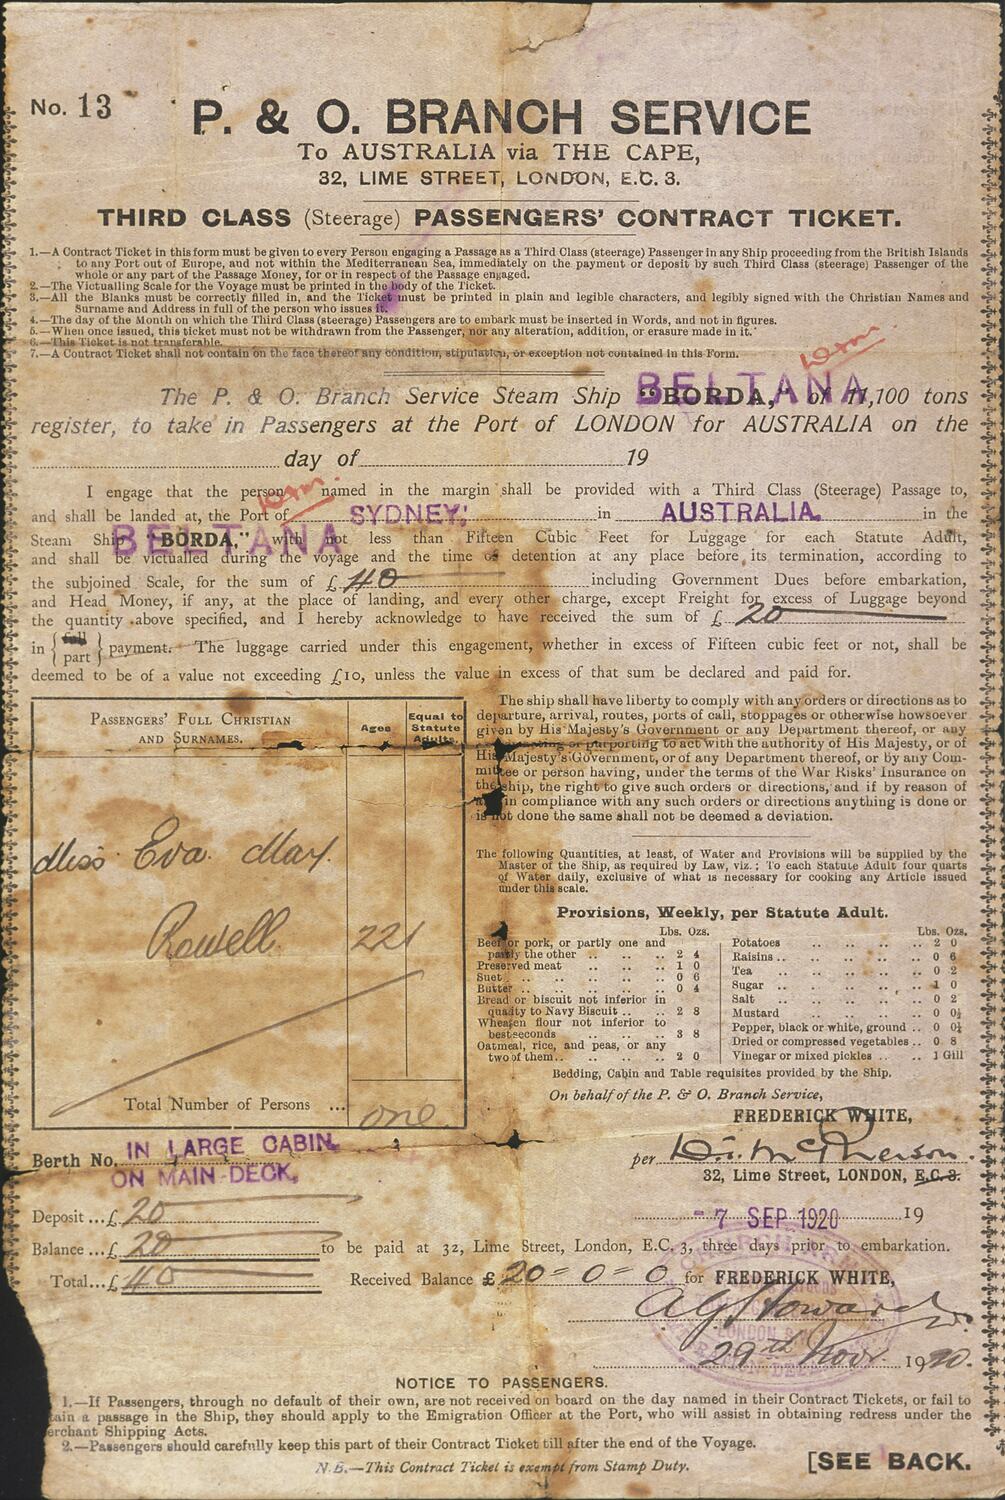 No. 13
P. & O. BRANCH SERVICE
To AUSTRALIA via THE CAPE,
32, LIME STREET, LONDON, E.C. 3.
THIRD CLASS (Steerage) PASSENGERS' CONTRACT TICKET.
1.—A Contract Ticket in this form must be given to every Person engaging a Passage as a Third Class (steerage) Passenger in any Ship proceeding from the British Islands
to any Port out of Europe, and not within the Mediterranean Sea, immediately on the payment or deposit by such Third Class (steerage) Passenger of the
whole or any part of the Passage Money, for or in respect of the Passage engaged.
2.—The Victualling Scale for the Voyage must be printed in the body of the Ticket.
3.—All the Blanks must be correctly filled in, and the Ticket must be printed in plain and legible characters, and legibly signed with the Christian Names and
Surname and Address in full of the person who issues it.
4.—The day of the Month on which the Third Class (steerage) Passengers are to embark must be inserted in Words, and not in figures.
5.—When once issued, this ticket must not be withdrawn from the Passenger, nor any alteration, addition, or erasure made in it.
6.—This Ticket is not transferable.
7.—A Contract Ticket shall not contain on the face thereof any condition, stipulation, or exception not contained in this Form.
BELTANA
The P. & O. Branch Service Steam Ship "BORDA," of 11,100 tons
register, to take in Passengers at the Port of LONDON for AUSTRALIA on the
day of 19
I engage that the person named in the margin shall be provided with a Third Class (Steerage) Passage to,
and shall be landed at, the Port of SYDNEY, in AUSTRALIA. in the
BELTANA
Steam Ship "BORDA," with not less than Fifteen Cubic Feet for Luggage for each Statute Adult,
and shall be victualled during the voyage and the time of detention at any place before its termination, according to
the subjoined Scale, for the sum of £ 40 including Government Dues before embarkation,
and Head Money, if any, at the place of landing, and every other charge, except Freight for excess of Luggage beyond
the quantity above specified, and I hereby acknowledge to have received the sum of £ 20
in { full part } payment. The luggage carried under this engagement, whether in excess of Fifteen cubic feet or not, shall be
deemed to be of a value not exceeding £10, unless the value in excess of that sum be declared and paid for.
PASSENGERS' FULL CHRISTIAN AND SURNAMES.
Ages
Equal to Statute Adults.
Miss Eva May
Rowell 22 1
Total Number of Persons ... one
The ship shall have liberty to comply with any orders or directions as to
departure, arrival, routes, ports of call, stoppages or otherwise howsoever
given by His Majesty's Government or any Department thereof, or any
or purporting to act with the authority of His Majesty, or of
His Majesty's Government, or of any Department thereof, or by any Com-
mittee or person having, under the terms of the War Risks' Insurance on
the ship, the right to give such orders or directions, and if by reason of
in compliance with any such orders or directions anything is done or
is not done the same shall not be deemed a deviation.
The following Quantities, at least, of Water and Provisions will be supplied by the
Master of the Ship, as required by Law, viz.; To each Statute Adult four quarts
of Water daily, exclusive of what is necessary for cooking any Article issued
under this scale.
Provisions, Weekly, per Statute Adult.
Lbs. Ozs.
Beef or pork, or partly one and
partly the other .. .. .. 2 4
Preserved meat .. .. .. 1 0
Suet .. .. .. .. 0 6
Butter .. .. .. .. 0 4
Bread or biscuit not inferior in
quality to Navy Biscuit .. .. 2 8
Wheaten flour not inferior to
best seconds .. .. .. 3 8
Oatmeal, rice, and peas, or any
two of them .. .. .. 2 0
Lbs. Ozs.
Potatoes .. .. .. .. 2 0
Raisins .. .. .. .. 0 6
Tea .. .. .. .. 0 2
Sugar .. .. .. .. 1 0
Salt .. .. .. .. 0 2
Mustard .. .. .. .. 0 0½
Pepper, black or white, ground .. 0 0¼
Dried or compressed vegetables .. 0 8
Vinegar or mixed pickles .. .. 1 Gill
Bedding, Cabin and Table requisites provided by the Ship.
On behalf of the P. & O. Branch Service,
FREDERICK WHITE,
per D. McPherson.
32, Lime Street, LONDON, E.C.3.
Berth No. IN LARGE CABIN.
ON MAIN DECK,
- 7 SEP 1920 19
Deposit ... £ 20
Balance ... £ 20 to be paid at 32, Lime Street, London, E.C. 3, three days prior to embarkation.
Total ... £ 40 Received Balance £ 20 = 0 = 0 for FREDERICK WHITE,
A G Howard
29th Novr. 1920.
NOTICE TO PASSENGERS.
1.—If Passengers, through no default of their own, are not received on board on the day named in their Contract Tickets, or fail to
tain a passage in the Ship, they should apply to the Emigration Officer at the Port, who will assist in obtaining redress under the
erchant Shipping Acts.
2.—Passengers should carefully keep this part of their Contract Ticket till after the end of the Voyage.
N.B.—This Contract Ticket is exempt from Stamp Duty.
[SEE BACK.